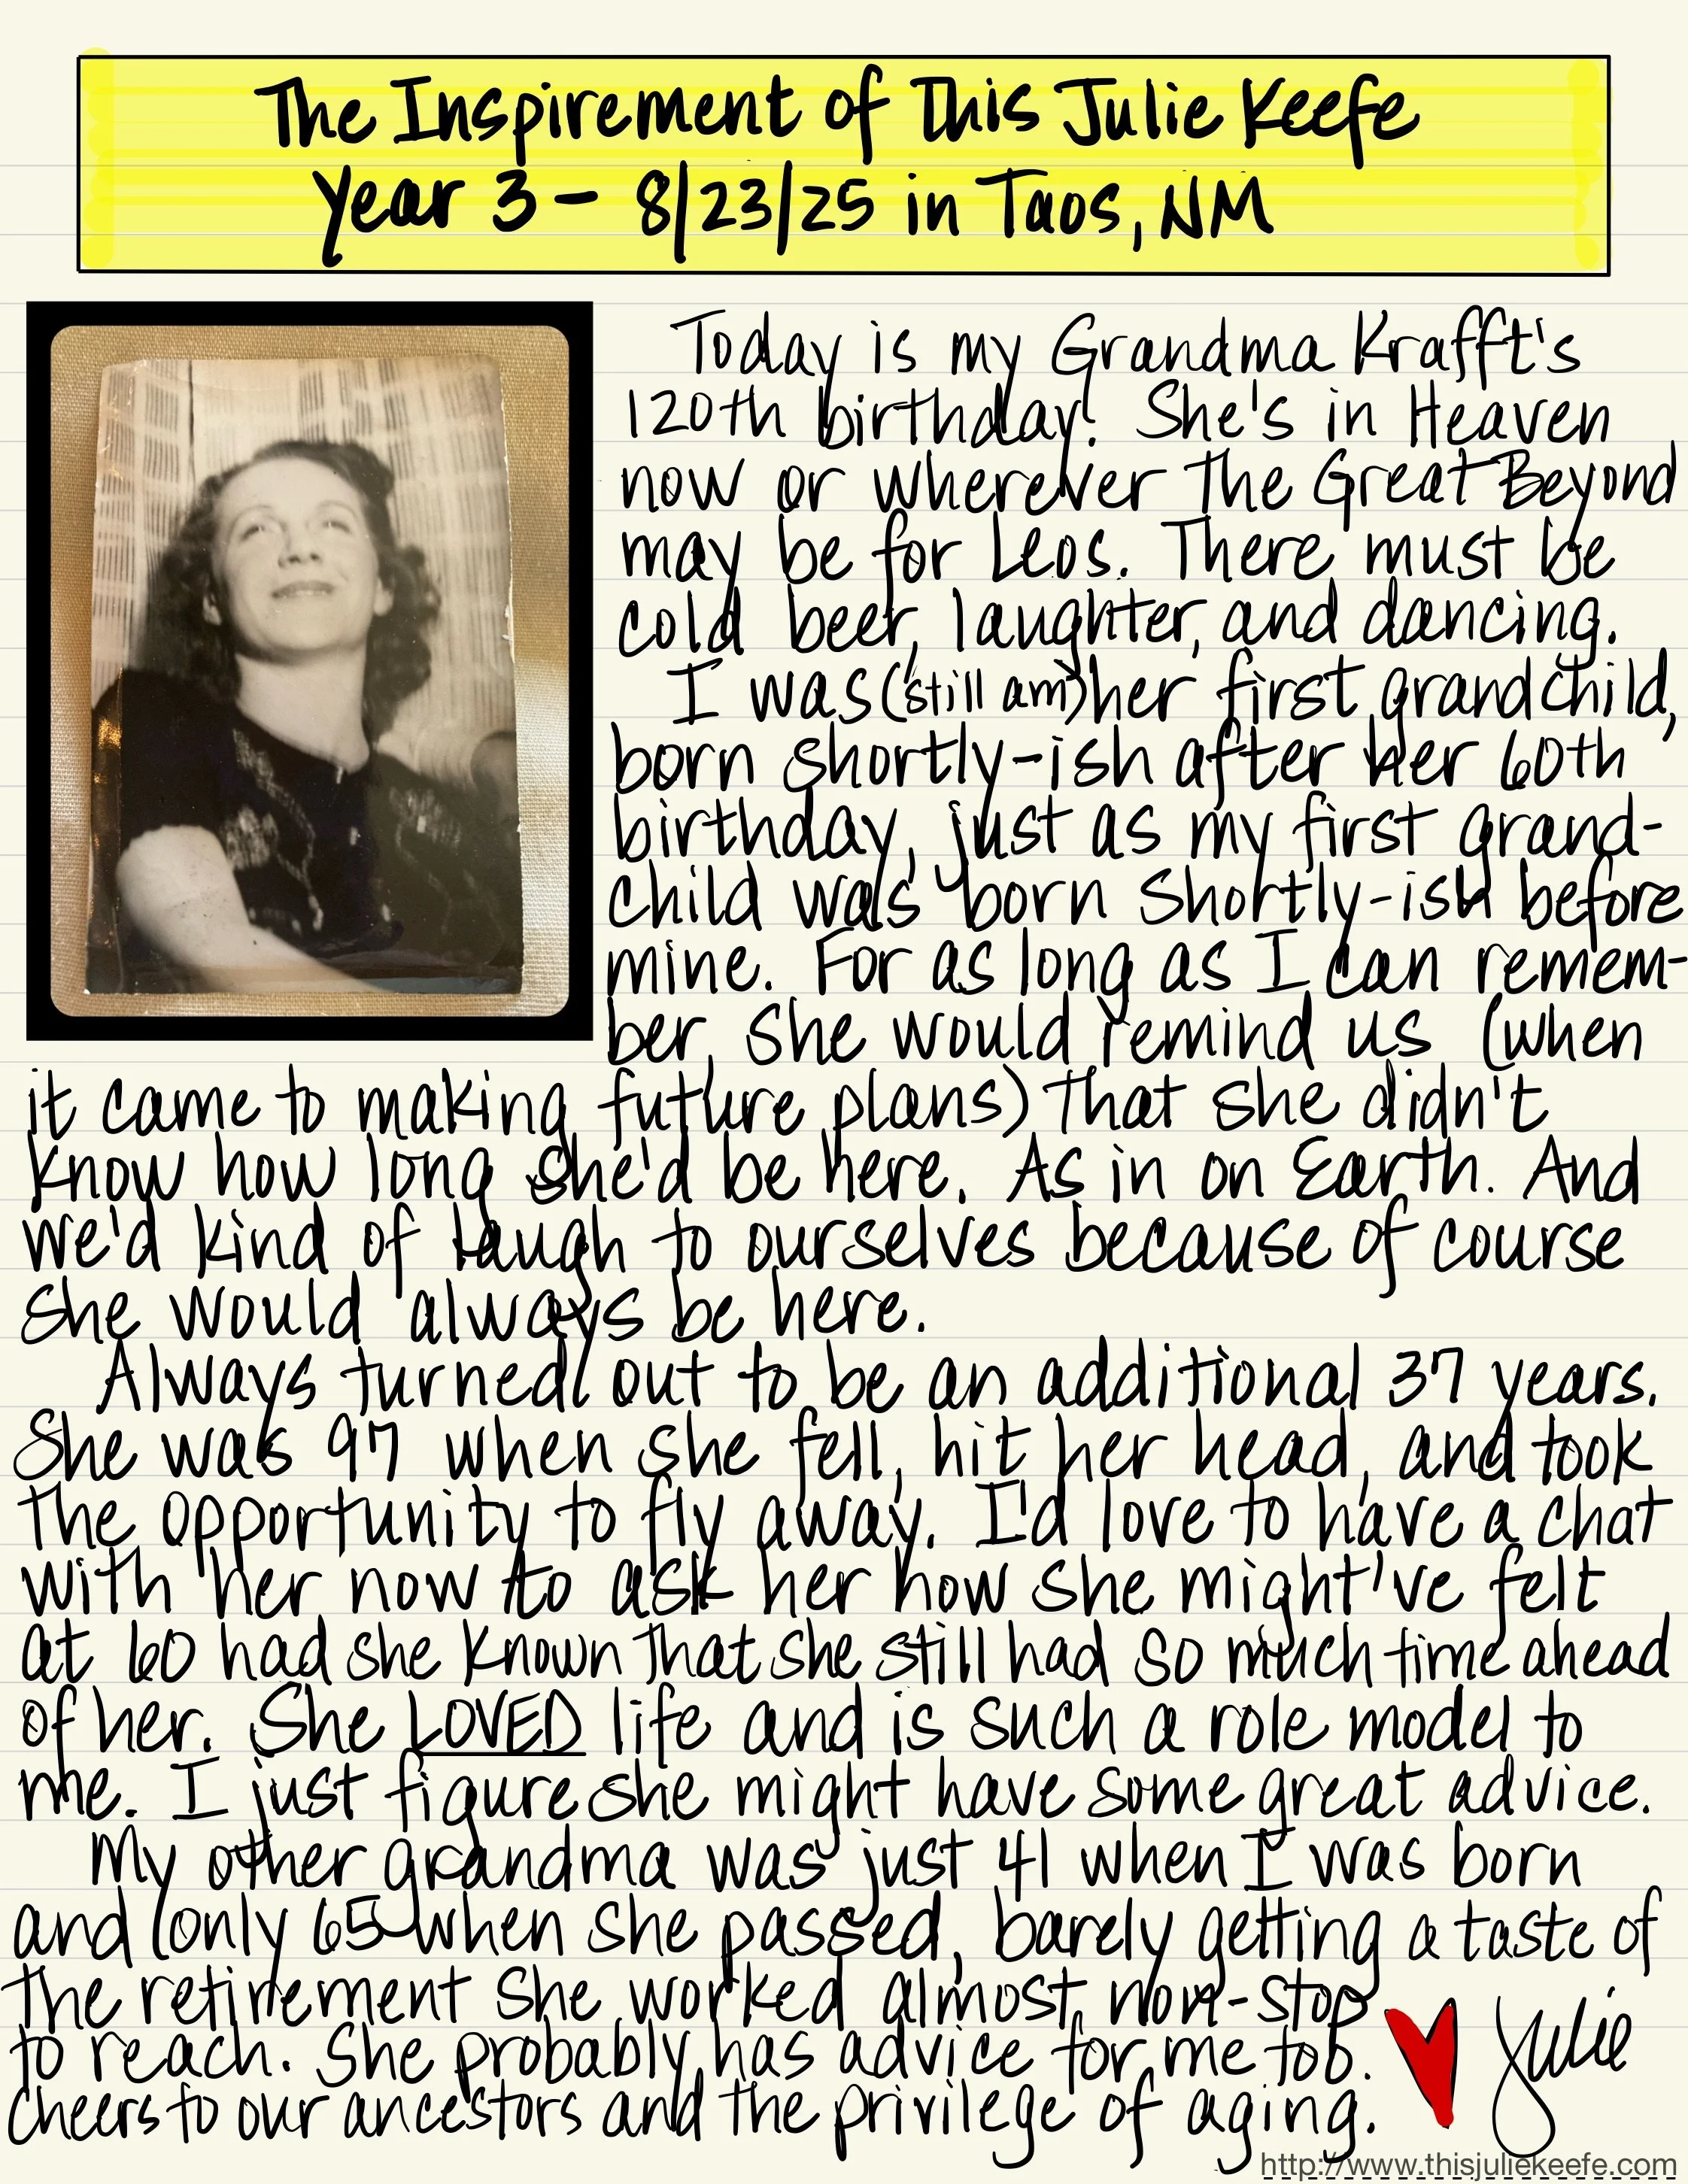 The Inspirement of This Julie Keefe
Year 3 - 8/23/25 in Taos, NM
Today is my Grandma Krafft's
120th birthday! She's in Heaven
now or wherever the Great Beyond
may be for Leos. There must be
cold beer, laughter, and dancing.
I was (still am) her first grandchild,
born shortly-ish after her 60th
birthday, just as my first grand-
child was born shortly-ish before
mine. For as long as I can remem-
ber, she would remind us (when
it came to making future plans) that she didn't
know how long she'd be here. As in on Earth. And
we'd kind of laugh to ourselves because of course
she would always be here.
Always turned out to be an additional 37 years.
She was 97 when she fell, hit her head, and took
the opportunity to fly away. I'd love to have a chat
with her now to ask her how she might've felt
at 60 had she known that she still had so much time ahead
of her. She LOVED life and is such a role model to
me. I just figure she might have some great advice.
My other grandma was just 41 when I was born
and only 65 when she passed, barely getting a taste of
the retirement she worked almost non-stop
to reach. She probably has advice for me too.
Cheers to our ancestors and the privilege of aging.
Julie
http://www.thisjuliekeefe.com